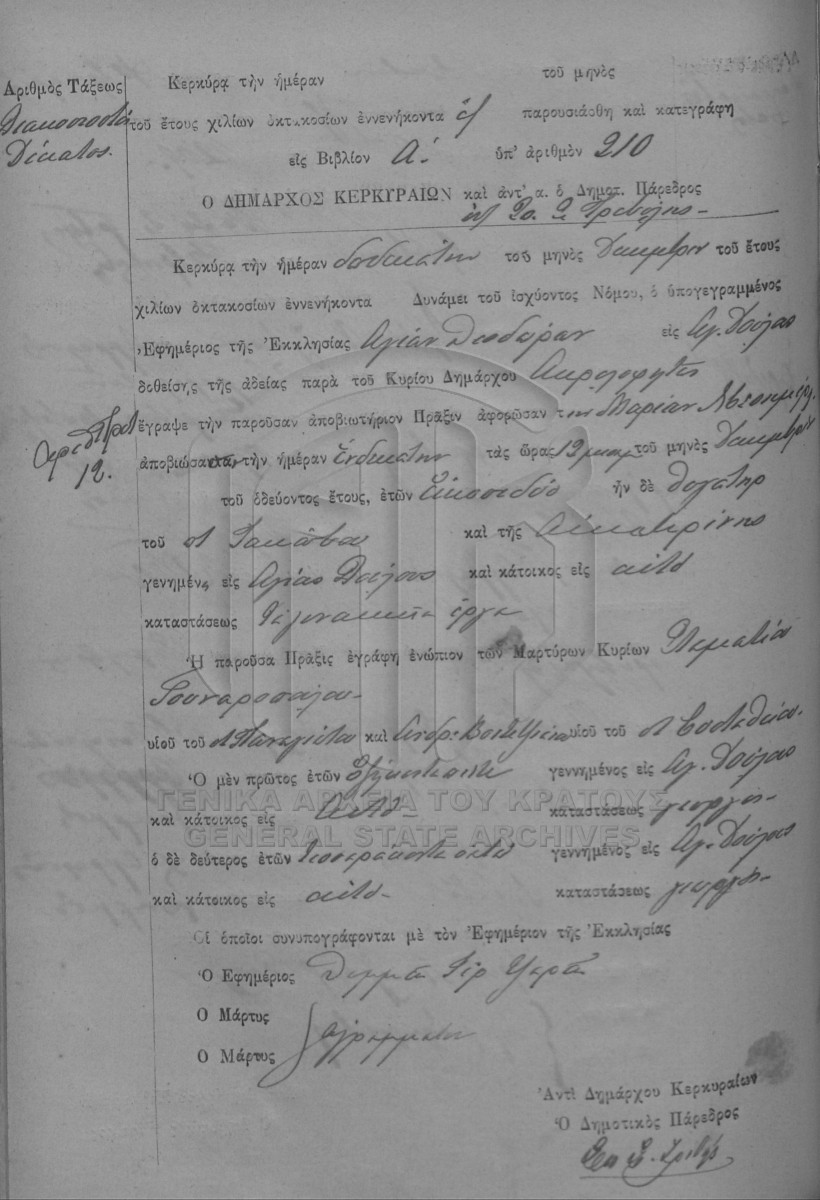 Ἀριθμὸς Τάξεως
Διακοσιοστὸς
Δέκατος.
Κερκύρᾳ τὴν ἡμέραν τοῦ μηνὸς
τοῦ ἔτους χιλίων ὀκτακοσίων ἐννενήκοντα παρουσιάσθη καὶ κατεγράφη
εἰς Βιβλίον Α. ὑπ' ἀριθμὸν 210
Ο ΔΗΜΑΡΧΟΣ ΚΕΡΚΥΡΑΙΩΝ καὶ ἀντ' α. ὁ Δημοτ. Πάρεδρος
Κερκύρᾳ τὴν ἡμέραν δωδεκάτην τοῦ μηνὸς Δεκεμβρίου τοῦ ἔτους
χιλίων ὀκτακοσίων ἐννενήκοντα Δυνάμει τοῦ ἰσχύοντος Νόμου, ὁ ὑπογεγραμμένος
Ἐφημέριος τῆς Ἐκκλησίας εἰς Ἁγ. Δούλους
δοθείσης τῆς ἀδείας παρὰ τοῦ Κυρίου Δημάρχου
ἔγραψε τὴν παροῦσαν ἀποβιωτήριον Πρᾶξιν ἀφορῶσαν τὴν Μαρίαν
12.
ἀποβιώσασαν τὴν ἡμέραν Ἑνδεκάτην τὰς ὥρας 12 τοῦ μηνὸς Δεκεμβρίου
τοῦ ὁδεύοντος ἔτους, ἐτῶν Εἰκοσιδύο ἦν δὲ θυγάτηρ
τοῦ Ἰακώβου καὶ τῆς Αἰκατερίνης
γενημένη εἰς Ἁγίους Δούλους καὶ κάτοικος εἰς αὐτὸ
καταστάσεως γυναικεῖα ἔργα
Ἡ παροῦσα Πρᾶξις ἐγράφη ἐνώπιον τῶν Μαρτύρων Κυρίων Σταματίου
Γουναροπούλου
υἱοῦ τοῦ Παναγιώτου καὶ Ἀνδρ. υἱοῦ τοῦ Εὐσταθίου
Ὁ μὲν πρῶτος ἐτῶν ἑξήκοντα γεννημένος εἰς Ἁγ. Δούλους
καὶ κάτοικος εἰς αὐτὸ καταστάσεως γεωργὸς
ΓΕΝΙΚΑ ΑΡΧΕΙΑ ΤΟΥ ΚΡΑΤΟΥΣ
GENERAL STATE ARCHIVES
ὁ δὲ δεύτερος ἐτῶν τεσσαράκοντα ὀκτὼ γεννημένος εἰς Ἁγ. Δούλους
καὶ κάτοικος εἰς αὐτὸ καταστάσεως γεωργὸς
Οἱ ὁποῖοι συνυπογράφονται μὲ τὸν Ἐφημέριον τῆς Ἐκκλησίας
Ὁ Ἐφημέριος
Ὁ Μάρτυς
ἀγράμματοι
Ὁ Μάρτυς
Ἀντὶ Δημάρχου Κερκυραίων
Ὁ Δημοτικὸς Πάρεδρος